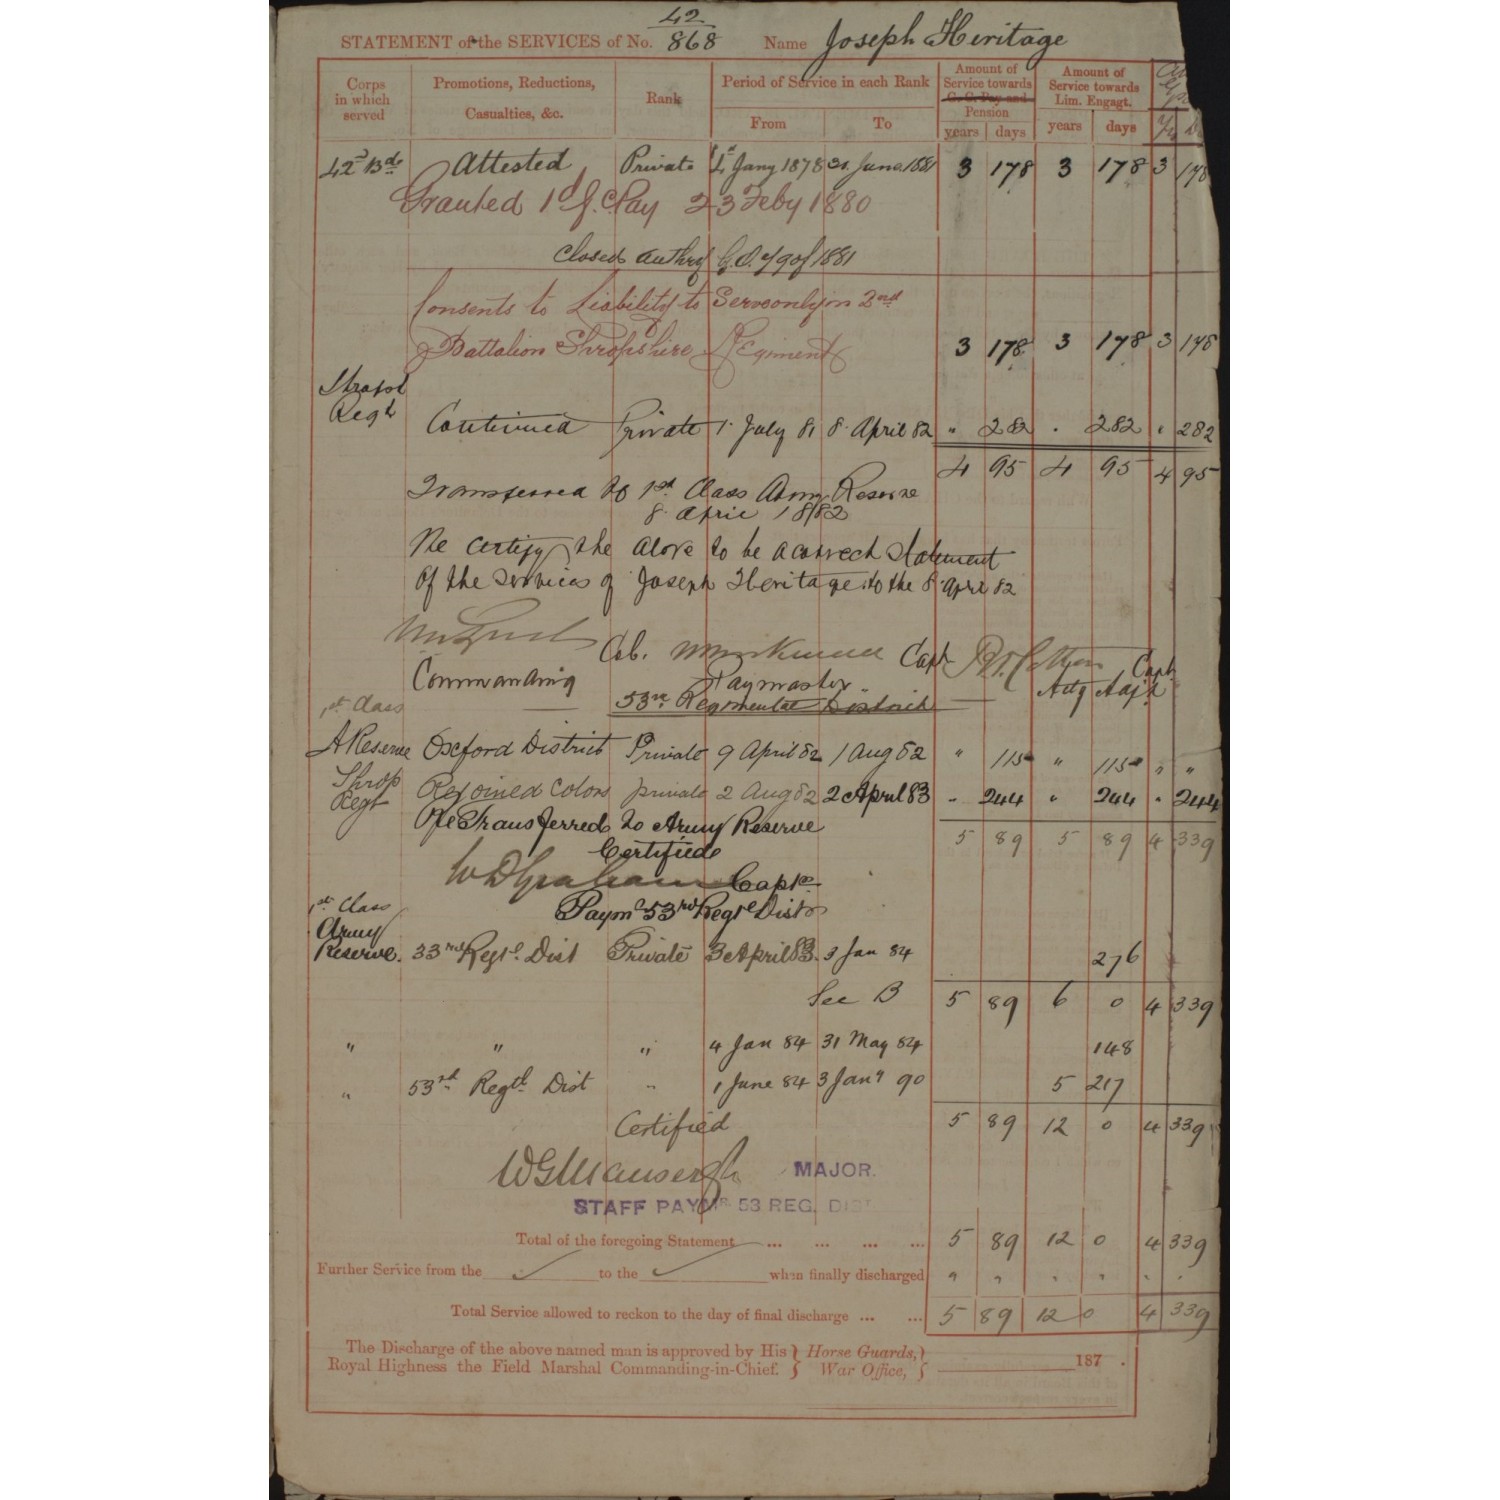 42
STATEMENT of the SERVICES of No. 868 Name Joseph Heritage
Corps in which served
Promotions, Reductions, Casualties, &c.
Rank
Period of Service in each Rank
From To
Amount of Service towards G. C. Pay and Pension
years days
Amount of Service towards Lim. Engagt.
years days
42nd Bde Attested Private 4 Jany 1878 30. June 1881 3 178 3 178 3 178
Granted 1d G.C. Pay 23 Feby 1880
Closed Authry G.O. 70 of 1881
Consents to Liability to Serve only in 2nd
Battalion Shropshire Regiment 3 178 3 178 3 178
Shrops
Regt Continued Private 1. July 81 8. April 82 " 282 " 282 " 282
4 95 4 95 4 95
Transferred to 1st Class Army Reserve
8. April 1882
We certify the above to be a correct Statement
of the Services of Joseph Heritage to the 8 April 82
Col. Capt Capt
Commanding Paymaster Actg Adjt
53rd Regimental District
1st Class
A Reserve Oxford District Private 9 April 82 1 Aug 82 " 115 " 115 " "
Shrop
Regt Rejoined Colors private 2 Aug 82 2 April 83 " 244 " 244 " 244
Re Transferred to Army Reserve 5 89 5 89 4 339
Certified
W D Graham Capt
Paymr 53rd Regtl Dist
1st Class
Army
Reserve. 33rd Regtl Dist Private 3 April 83. 3 Jan 84 276
See B 5 89 6 0 4 339
" " " 4 Jan 84 31 May 84 148
" 53rd Regtl Dist " 1 June 84 3 Jany 90 5 217
Certified 5 89 12 0 4 339
MAJOR.
STAFF PAYMR. 53 REG. DIST
Total of the foregoing Statement ... ... ... ... 5 89 12 0 4 339
Further Service from the to the when finally discharged " " " " " "
Total Service allowed to reckon to the day of final discharge ... ... 5 89 12 0 4 339
The Discharge of the above named man is approved by His } Horse Guards, }
Royal Highness the Field Marshal Commanding-in-Chief. } War Office, } 187 .